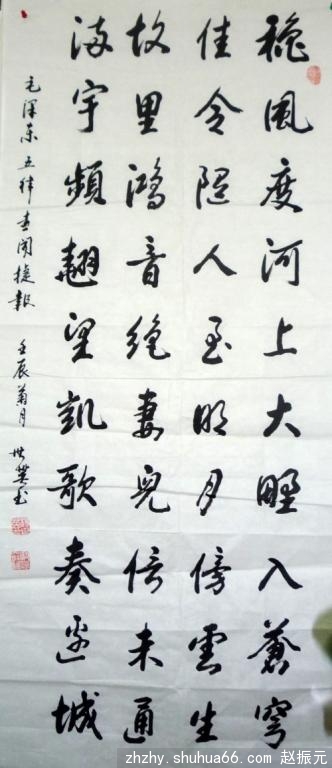 穐風度河上大野入蒼穹
佳令隨人至明月傍雲生
故里鴻音絶妻兒信未通
滿宇頻翹望凱歌奏邊城
毛澤东五律喜闻捷報 壬辰菊月 世书
zhzhy.shuhua66.com 赵振元